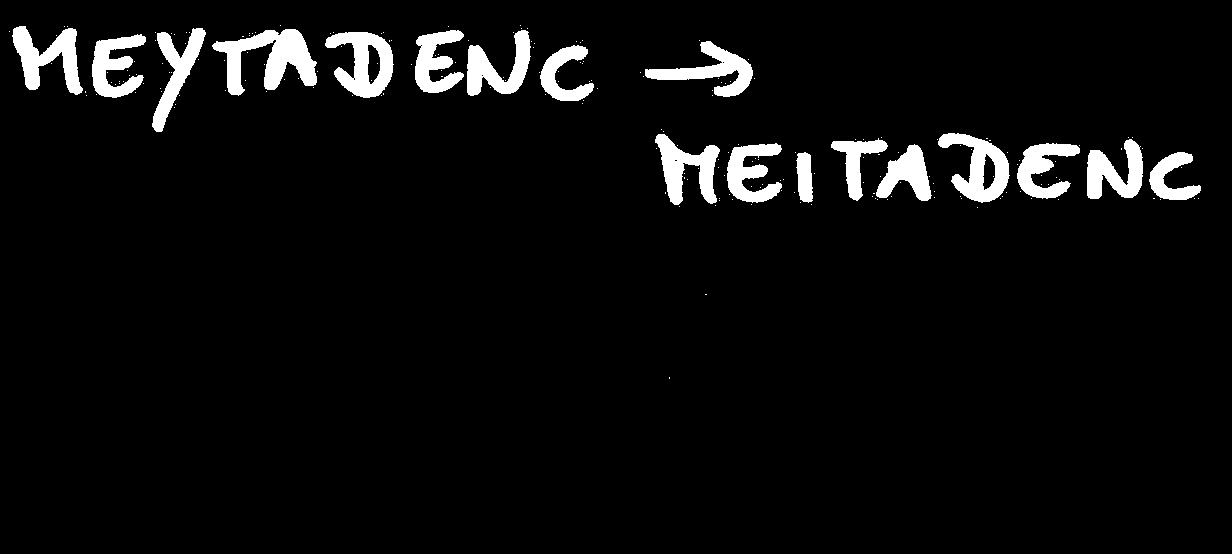 MEYTADENC →
MEITADENC